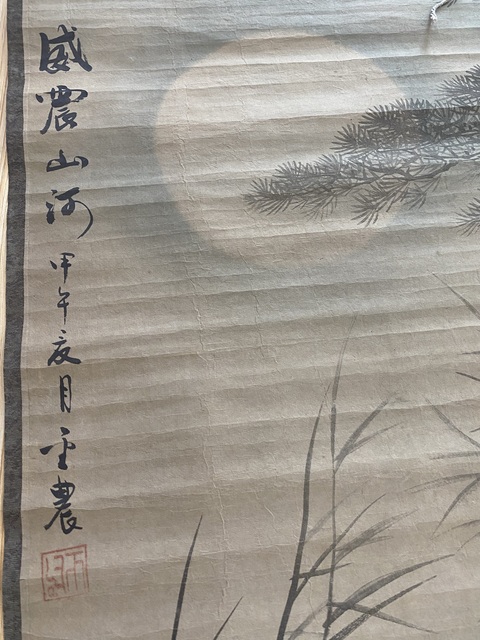 威震山河甲午夏月農